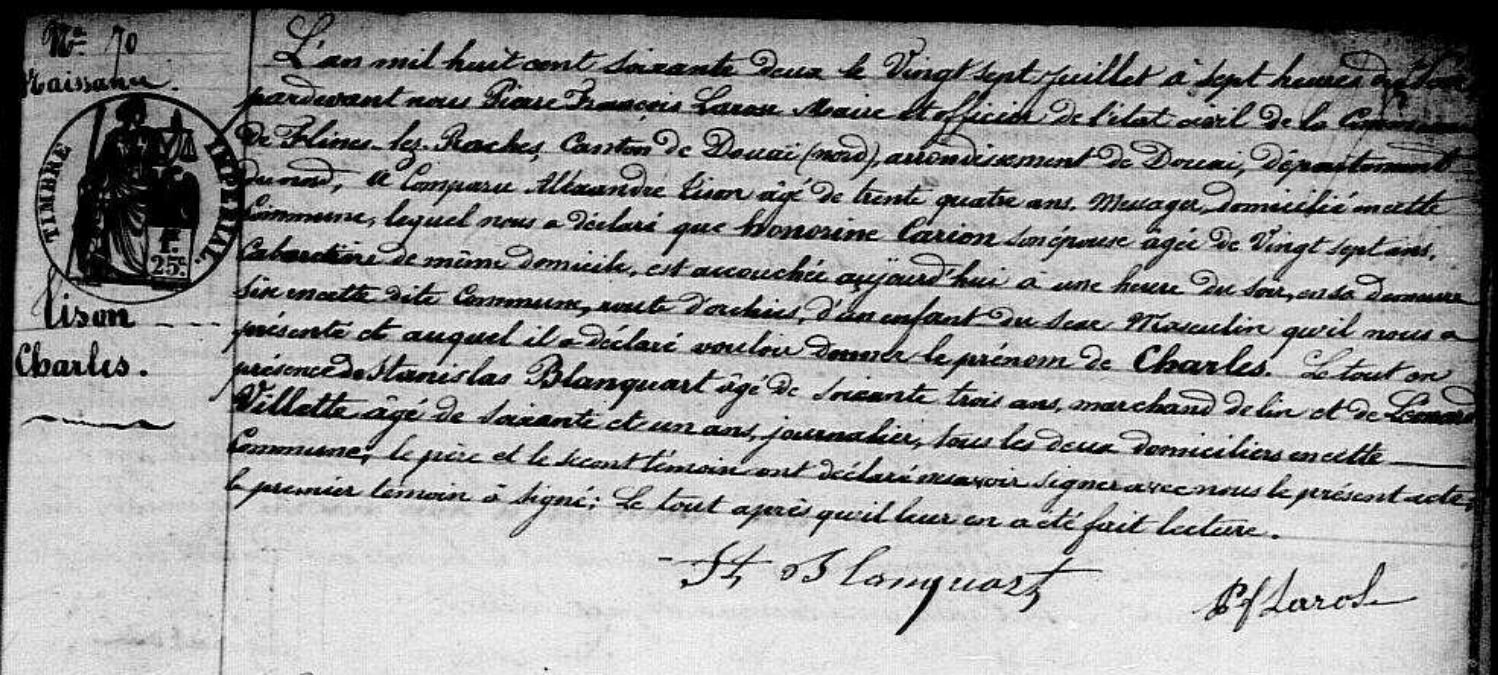 Nº 70
Naissance.
TIMBRE IMPÉRIAL
1F.
25C.
Lison
Charles.
L'an mil huit cent soixante deux le Vingt sept juillet à sept heures du soir,
pardevant nous Piere François Larose Maire et officier de l'état civil de la Commune
de Flines-lez-Raches, Canton de Douai (nord), arrondissement de Douai, département
du nord, a Comparu Alexandre Lison âgé de trente quatre ans. Messager, domicilié en cette
Commune, lequel nous a déclaré que honorine Carion son épouse âgée de Vingt sept ans.
Cabaretière de même domicile, est accouchée aujourd'hui à une heure du soir, en sa demeure
sise en cette dite Commune, route d'orchies, d'un enfant du sexe Masculin qu'il nous a
présenté et auquel il a déclaré vouloir donner le prénom de Charles. Le tout en
présence de Stanislas Blanquart âgé de soixante trois ans, marchand de lin et de
Villette âgé de soixante et un ans, journalier, tous les deux domiciliers en cette
Commune, le père et le second témoin ont déclaré ne savoir signer avec nous le présent acte;
le premier témoin à signé; Le tout après qu'il leur en a été fait lecture.
St Blanquart
Pf Larose